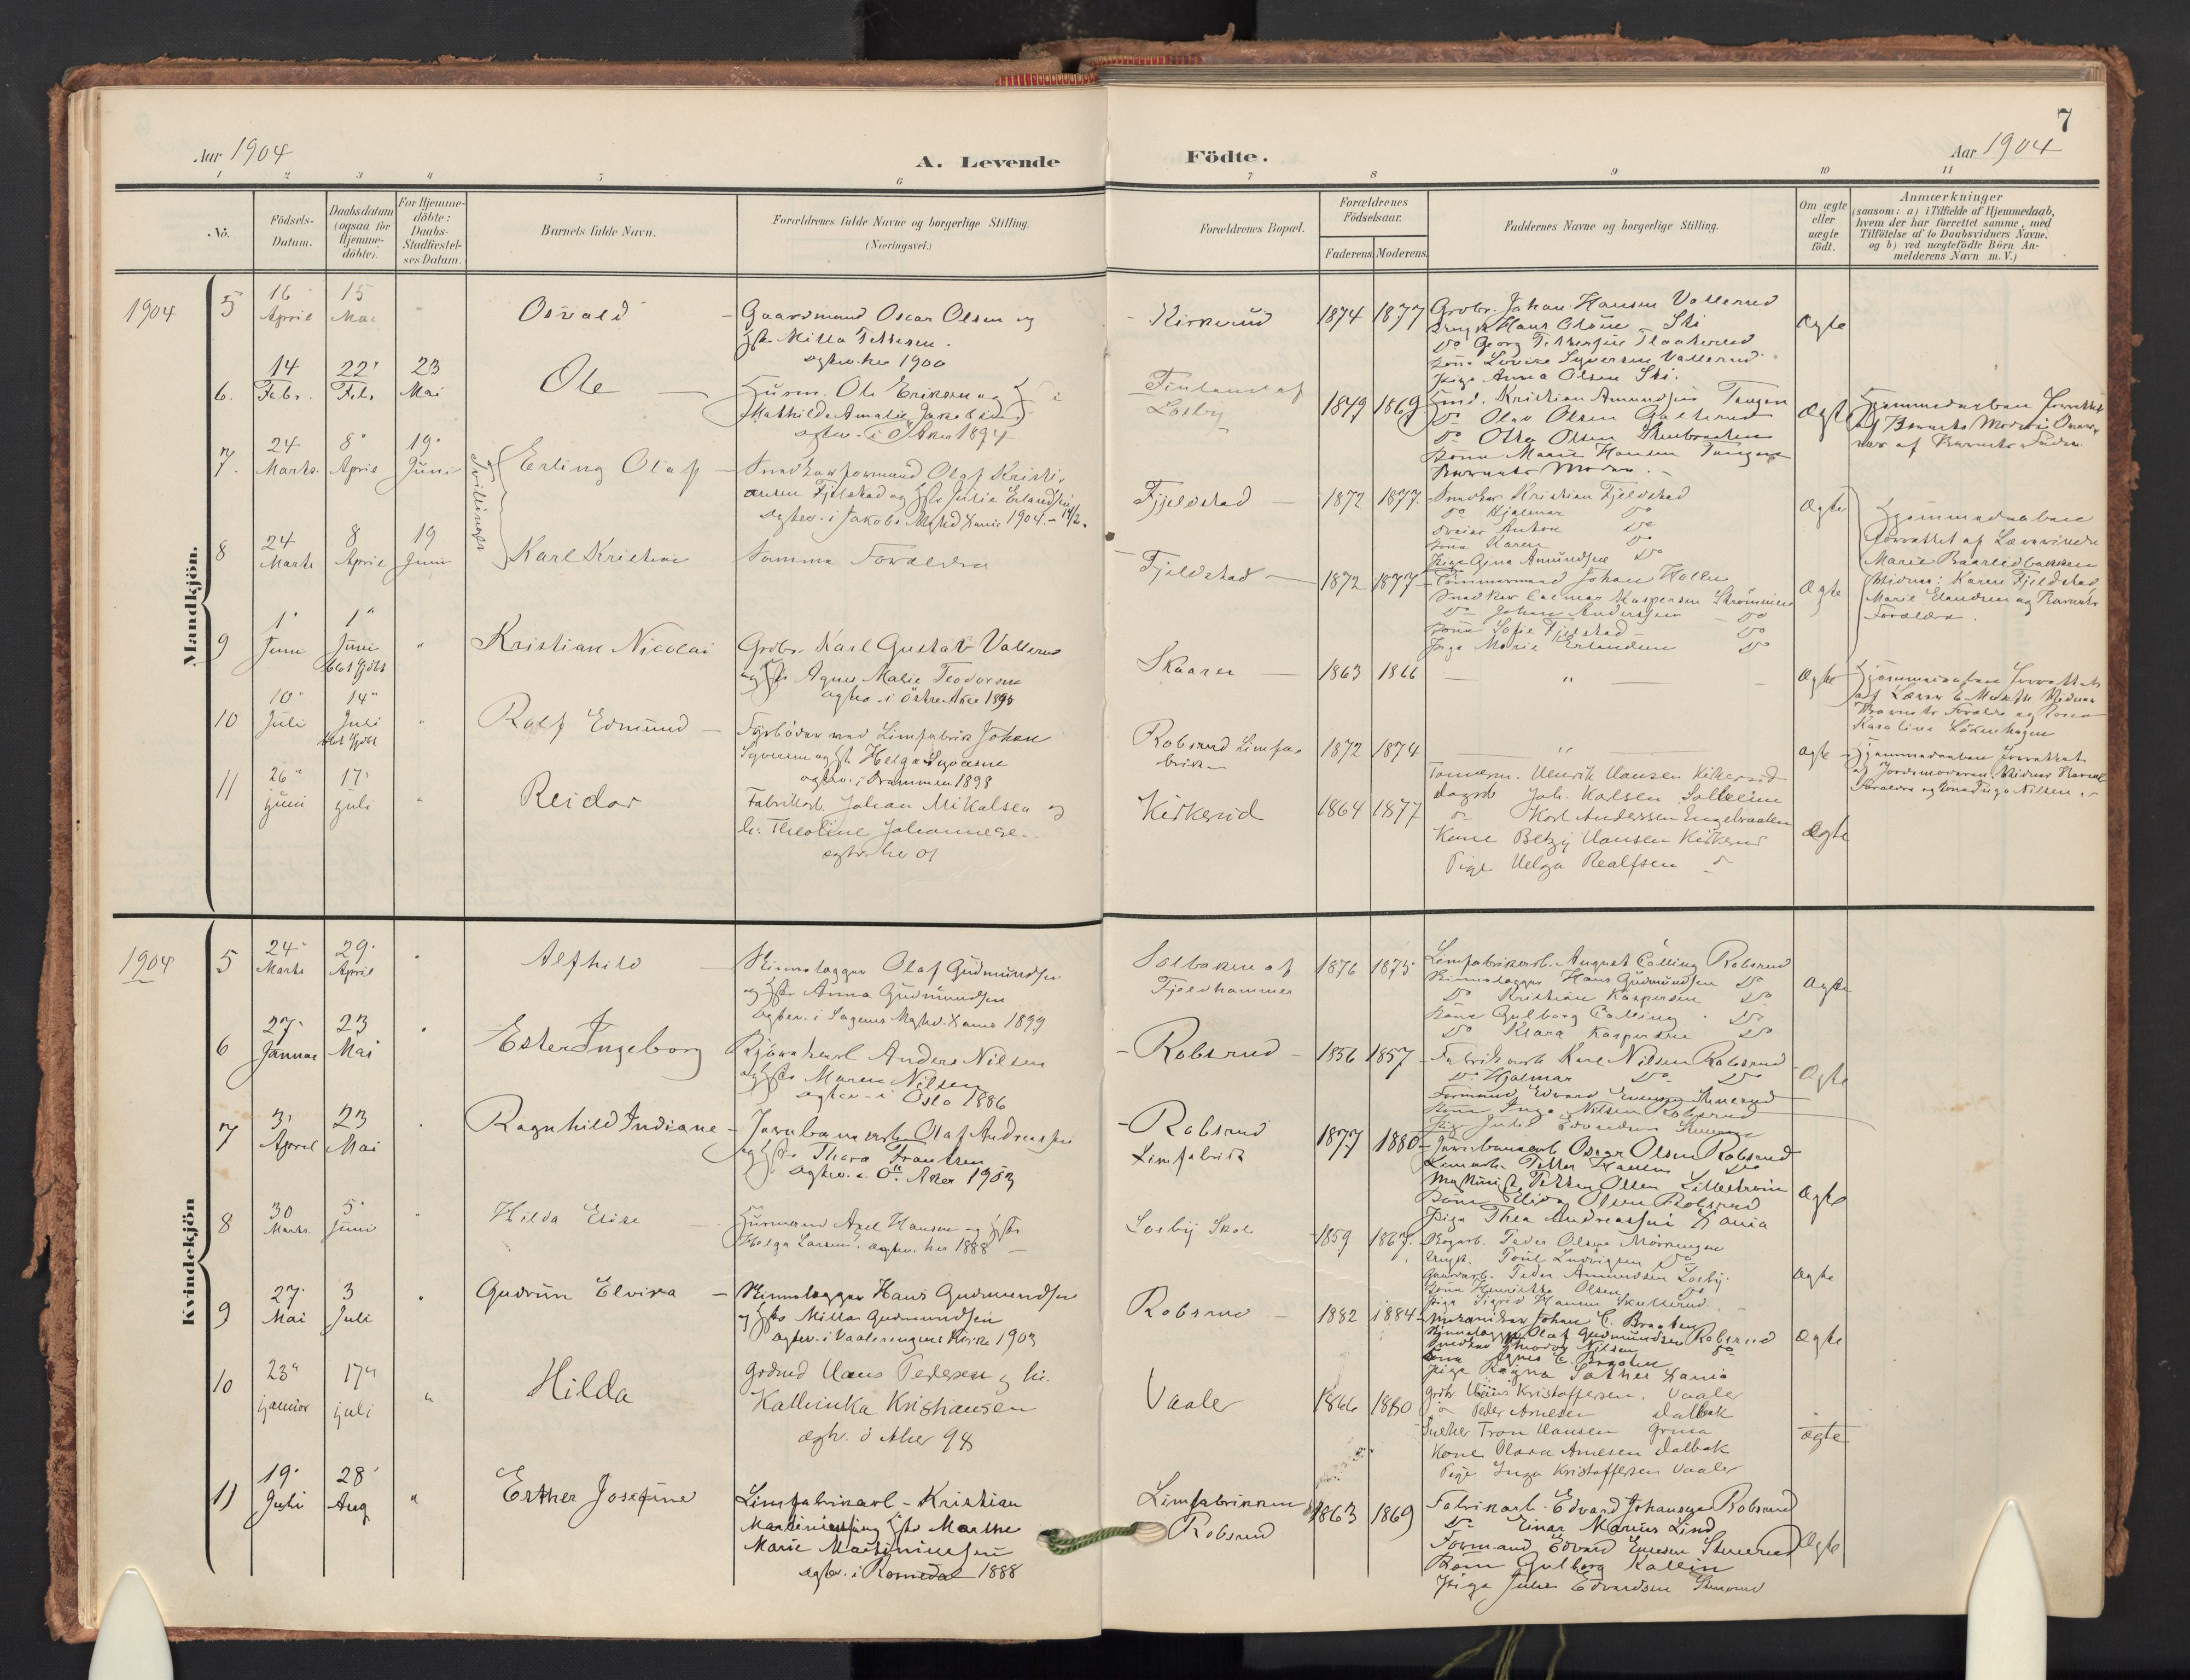 7
Aar 1904
A. Levende
Födte.
Aar 1904
1 2 3 4 5 6 7 8 9 10 11
No.
Födsels-
Datum.
Daabsdatum
(ogsaa for
Hjemme-
döbte).
For Hjemme-
döbte:
Daabs-
Stadfæstel-
ses Datum.
Barnets fulde Navn.
Forældrenes fulde Navne og borgerlige Stilling.
(Næringsvei.)
Forældrenes Bopæl.
Forældrenes
Födselsaar.
Faderens. Moderens.
Faddernes Navne og borgerlige Stilling.
Om ægte
eller
uægte
födt.
Anmærkninger
(saasom: a) i Tilfælde af Hjemmedaab,
hvem der har forrettet samme, med
Tilföielse af to Daabsvidners Navne,
og b) ved uægtefödte Börn An-
melderens Navn m. V.)
Mandkjön.
1904
5
16 April
15 Mai
"
Osvald
Gaardmand Oscar Olsen og
Milla Pettersen.
1900
Kirkerud
1874 1877
Grdbr. Johan Hansen Vallerud
Hans Olsen Ski
Do Georg
Kone Lovise Syversen Vallerud
Pige Anna Olsen Ski.
Ægte
6.
14 Febr.
22 Feb.
23 Mai
Ole
Husm. Ole Eriksen og
Mathilde Amalie Jakobsen
i Ö Aker 1894
Finland af
Losby
1879 1869
Kristian Amundsen Tangen
Do Olav Olsen
Do Otto Olsen
Kone Marie Hansen Tangen
Barnets Moder.
Ægte
Hjemmedaaben forrettet
af Barnets
af Barnets Fader.
7.
24 Marts.
8 April
19 Juni
Tvillinger
Erling Olaf
Snedkerformand Olaf Kristi-
ansen Fjelstad og Julie Erlandsen
i Jakobs Mghd Xania 1904 - 14/2.
Fjeldstad
1872 1877.
Snedker Kristian Fjeldstad
Do Hjalmar Do
Anton Do
Kone Karen Do
Pige Gina Amundsen Do
Ægte
Hjemmedaaben
forrettet af Lærerinde
Marie
Vidner: Karen Fjeldstad
Marie Erlandsen og Barnets
Forældre.
8
24 Marts
8 April
19 Juni
Karl Kristian
Samme Forældre
Fjeldstad
1872 1877
Tömmermand Johan Holm
Snedker Kaspersen Strömmen
Do Johan Andersen Do
Kone Sofie Fjelstad Do
Pige Marie Erlandsen Do
Ægte
9
1 Juni
1 Juni
"
Kristian Nicolai
Grdbr. Karl Gustav Vallerud
og Agnes Malie Teodorsen
i Östre Aker 1890
Skaarer
1863 1866
"
Ægte
Hjemmedaaben forrettet
af Lærer
Barnets Forældre og
Karoline Lökenhagen
10
10 Juli
14 Juli
"
Rolf Edmund
Fyrböder ved Limfabrik Johan
Syversen og Helga Syversen
i Drammen 1898
Robsrud Limfa-
brik
1872 1874
"
ægte
Hjemmedaaben forrettet
af Jordmoderen, Vidner Barnets
Forældre og Nilsen
11
26 juni
17 juli
"
Reidar
Fabrikarb. Johan Mikalsen og
h. Theoline Johannesen
ægtev. her 01
Kirkerud
1864 1877
Tømmerm. Henrik Hansen Kirkerud
dagarb Joh. Karlsen Solheim
do Karl Anderssen Engebraaten
Kone Betzy Hansen Kirkerud
Pige Helga Realfsen do
Ægte
Kvindekjön
1904
5
24 Marts
29 April
"
Alfhild
Skinnelægger Olaf Gudmundsen
og Anna Gudmundsen
i Sagenes Mghd. Xania 1899
Solbaken af
Fjeldhammer
1876 1875
Limfabrikarb. August Palling Robsrud
Skinnelægger Hans Gudmundsen Do
Do Kristian Kaspersen Do
Kone Gulborg Palling Do
Do Klara Kaspersen Do
Ægte
6
27 Januar
23 Mai
"
Ester Ingeborg
Anders Nilsen
og Maren Nilsen
i Oslo 1886
Robsrud
1856 1857
Fabrikarb Karl Nilsen Robsrud
Do Hjalmar Do Do
Formand Edvard Stenerud
Kone Inga Nilsen Robsrud
Pige Julie Edvardsen Stenerud
Ægte
7
3 April
23 Mai
"
Ragnhild Indiane
Jernbanearb. Olaf Andreassen
og Thora Frantzen
i Ö. Aker 1903
Robsrud
Limfabrik
1877 1880
Jernbanearb Oscar Olsen Robsrud
Limarb. Petter Hansen Do
Maskinist Petter Olsen Lilleström
Kone Elida Olsen Robsrud
Pige Thea Andreassen Xania
Ægte
8
30 Marts.
5 Juni
"
Hilda Elise
Husmand Axel Hansen og
Helga Larsen. ægtev. her 1888
Losby Skol
1859 1867.
Peder Olsen
Ungk. Ludvigsen Do
Gaardarb. Peder Amundsen Losby.
Kone Henriette Olsen Do
Pige Sigrid Hansen
Ægte
9
27 Mai
3 Juli
"
Gudrun Elvira
Skinnelægger Hans Gudmundsen
og Milla Gudmundsen
i Vaalerengens Kirke 1903
Robsrud
1882 1884
Mekaniker Johan E. Braaten
Skinnelægger Olaf Gudmundsen Robsrud
Snedker Theodor Nilsen Do
Kone Agnes E. Braaten
Pige Ragna Sather Xania
Ægte
10
23 januar
17 juli
"
Hilda
Grdmd Hans Pedersen og h.
Kathinka Kristiansen
ægtv. Ö Aker 98
Vaaler
1866 1880
Grdbr Hans Kristoffersen, Vaaler
do Peder Arnesen Dalbak
Snekker Tron Hansen
Kone Olava Arnesen Dalbak
Pige Inga Kristoffersen Vaaler
ægte
11
19 Juli
28 Aug
"
Esther Josefine
Limfabrikarb. - Kristian
Martiniussen og Marthe
Marie Martiniussen
i Romedal 1888
Limfabrikken
Robsrud
1863 1869
Fabrikarb. Edvard Johansen Robsrud
Do Einar Marius Lind
Formand Edvard Stenerud
Kone Gulborg Kallin
Pige Julie Edvardsen Stenerud
Ægte